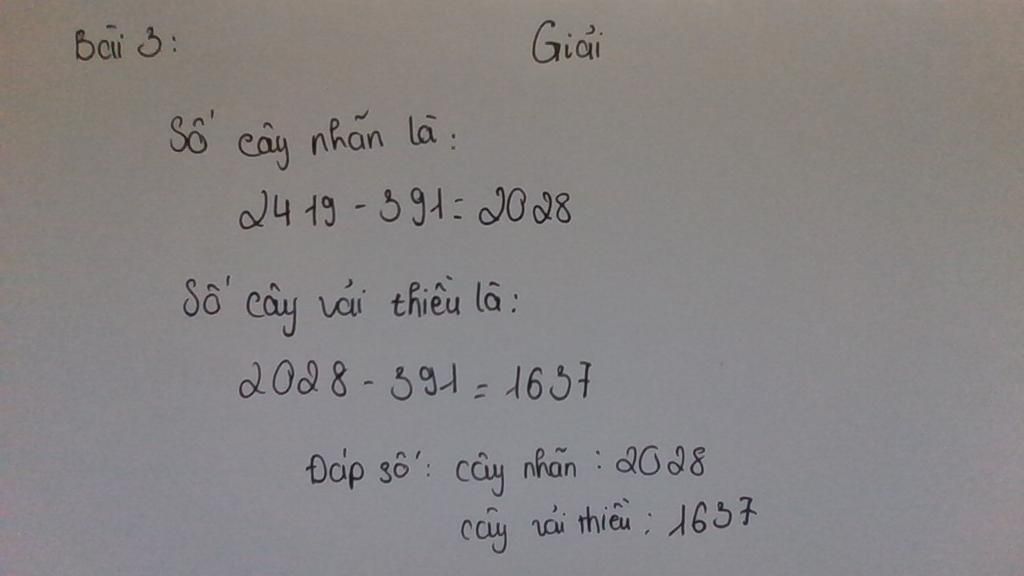 Bài 3: Giải
Số cây nhãn là:
2419 - 391 = 2028
Số cây vải thiều là:
2028 - 391 = 1637
Đáp số: cây nhãn: 2028
cây vải thiều: 1637